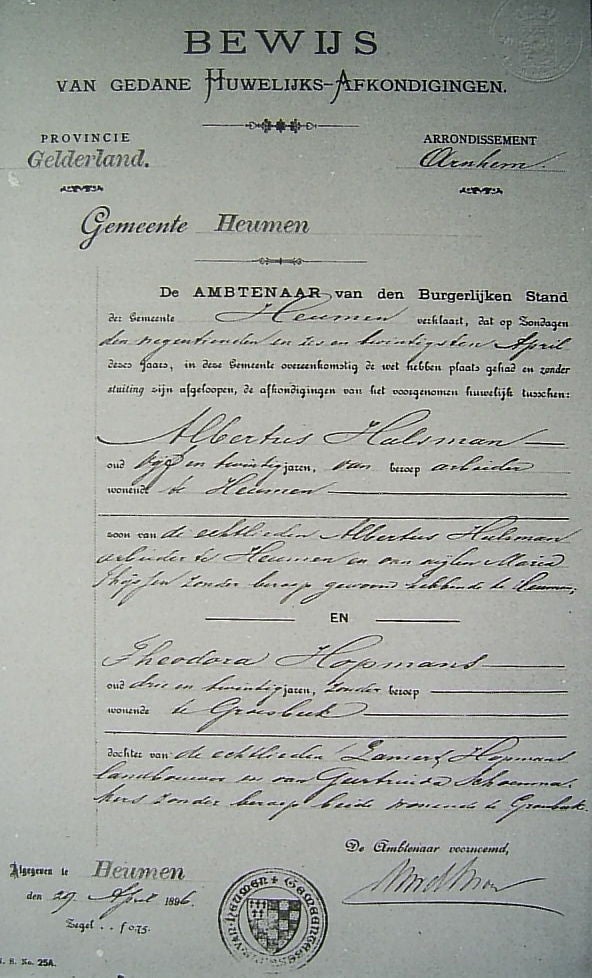 BEWIJS
VAN GEDANE HUWELIJKS-AFKONDIGINGEN.
PROVINCIE
Gelderland.
ARRONDISSEMENT
Arnhem.
Gemeente Heumen
De AMBTENAAR van den Burgerlijken Stand
der Gemeente Heumen verklaart, dat op Zondagen
den negentienden en zes en twintigsten April
dezes jaars, in deze Gemeente overeenkomstig de wet hebben plaats gehad en zonder
stuiting zijn afgeloopen, de afkondigingen van het voorgenomen huwelijk tusschen:
Albertus Hulsman
oud vijf en twintig jaren, van beroep arbeider
wonende te Heumen
zoon van de echtlieden Albertus Hulsman
arbeider te Heumen en van wijlen Maria
zonder beroep gewoond hebbende te Heumen,
EN
Theodora Hopmans
oud drie en twintig jaren, zonder beroep
wonende te Groesbeek
dochter van de echtlieden Lamert Hopmans
landbouwer en van Geertruida Schoenma-
kers zonder beroep beide wonende te Groesbeek.
De Ambtenaar voornoemd,
Afgegeven te Heumen
den 29 April 1896.
Zegel . . f 0.75.
N. B. No. 25A.